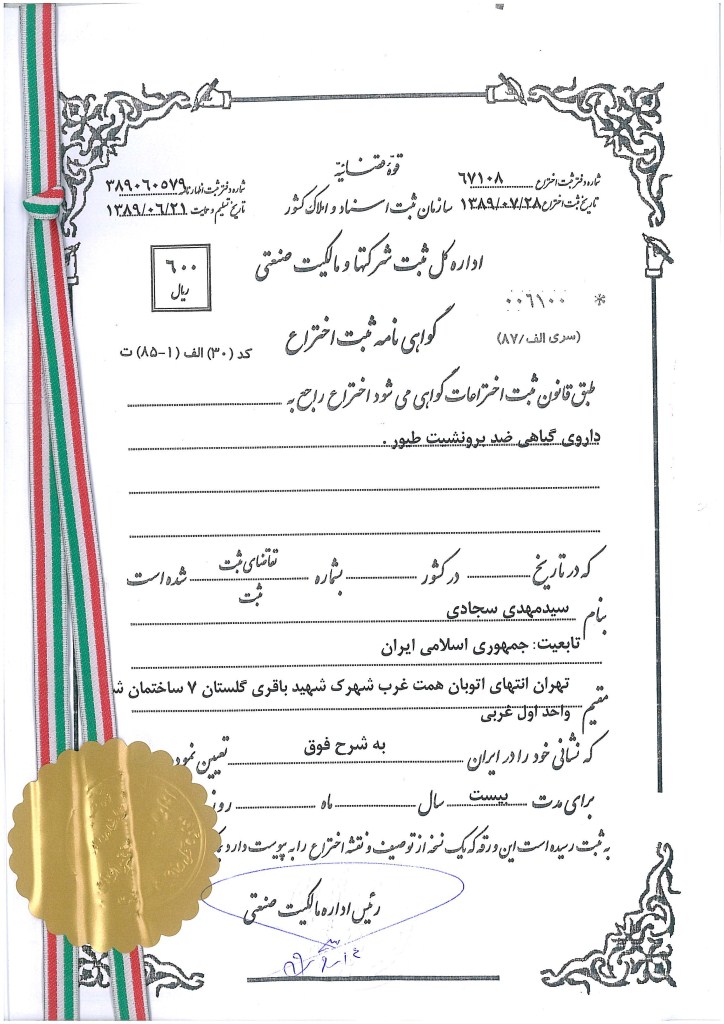 قوه قضائیه
شماره دفتر ثبت اختراع ۶۷۱۰۸
شماره دفتر ثبت اظهارنامه ۳۸۹۰۶۰۵۷۹
تاریخ ثبت اختراع ۱۳۸۹/۰۷/۲۸
سازمان ثبت اسناد و املاک کشور
تاریخ تسلیم و حمایت ۱۳۸۹/۰۶/۲۱
اداره کل ثبت شرکتها و مالکیت صنعتی
۶۰۰
ریال
* ۰۰۶۱۰۰
(سری الف/۸۷)
گواهی نامه ثبت اختراع
کد (۳۰) الف (۱-۸۵) ت
طبق قانون ثبت اختراعات گواهی می شود اختراع راجع به
داروی گیاهی ضد برونشیت طیور .
که در تاریخ در کشور بشماره تقاضای ثبت شده است
ثبت
بنام سیدمهدی سجادی
تابعیت: جمهوری اسلامی ایران
مقیم تهران انتهای اتوبان همت غرب شهرک شهید باقری گلستان ۷ ساختمان
واحد اول غربی
که نشانی خود را در ایران به شرح فوق تعیین نمود
برای مدت بیست سال ماه روز
به ثبت رسیده است این ورقه که یک نسخه از توصیف و نقشه اختراع را به پیوست دارد
رئیس اداره مالکیت صنعتی